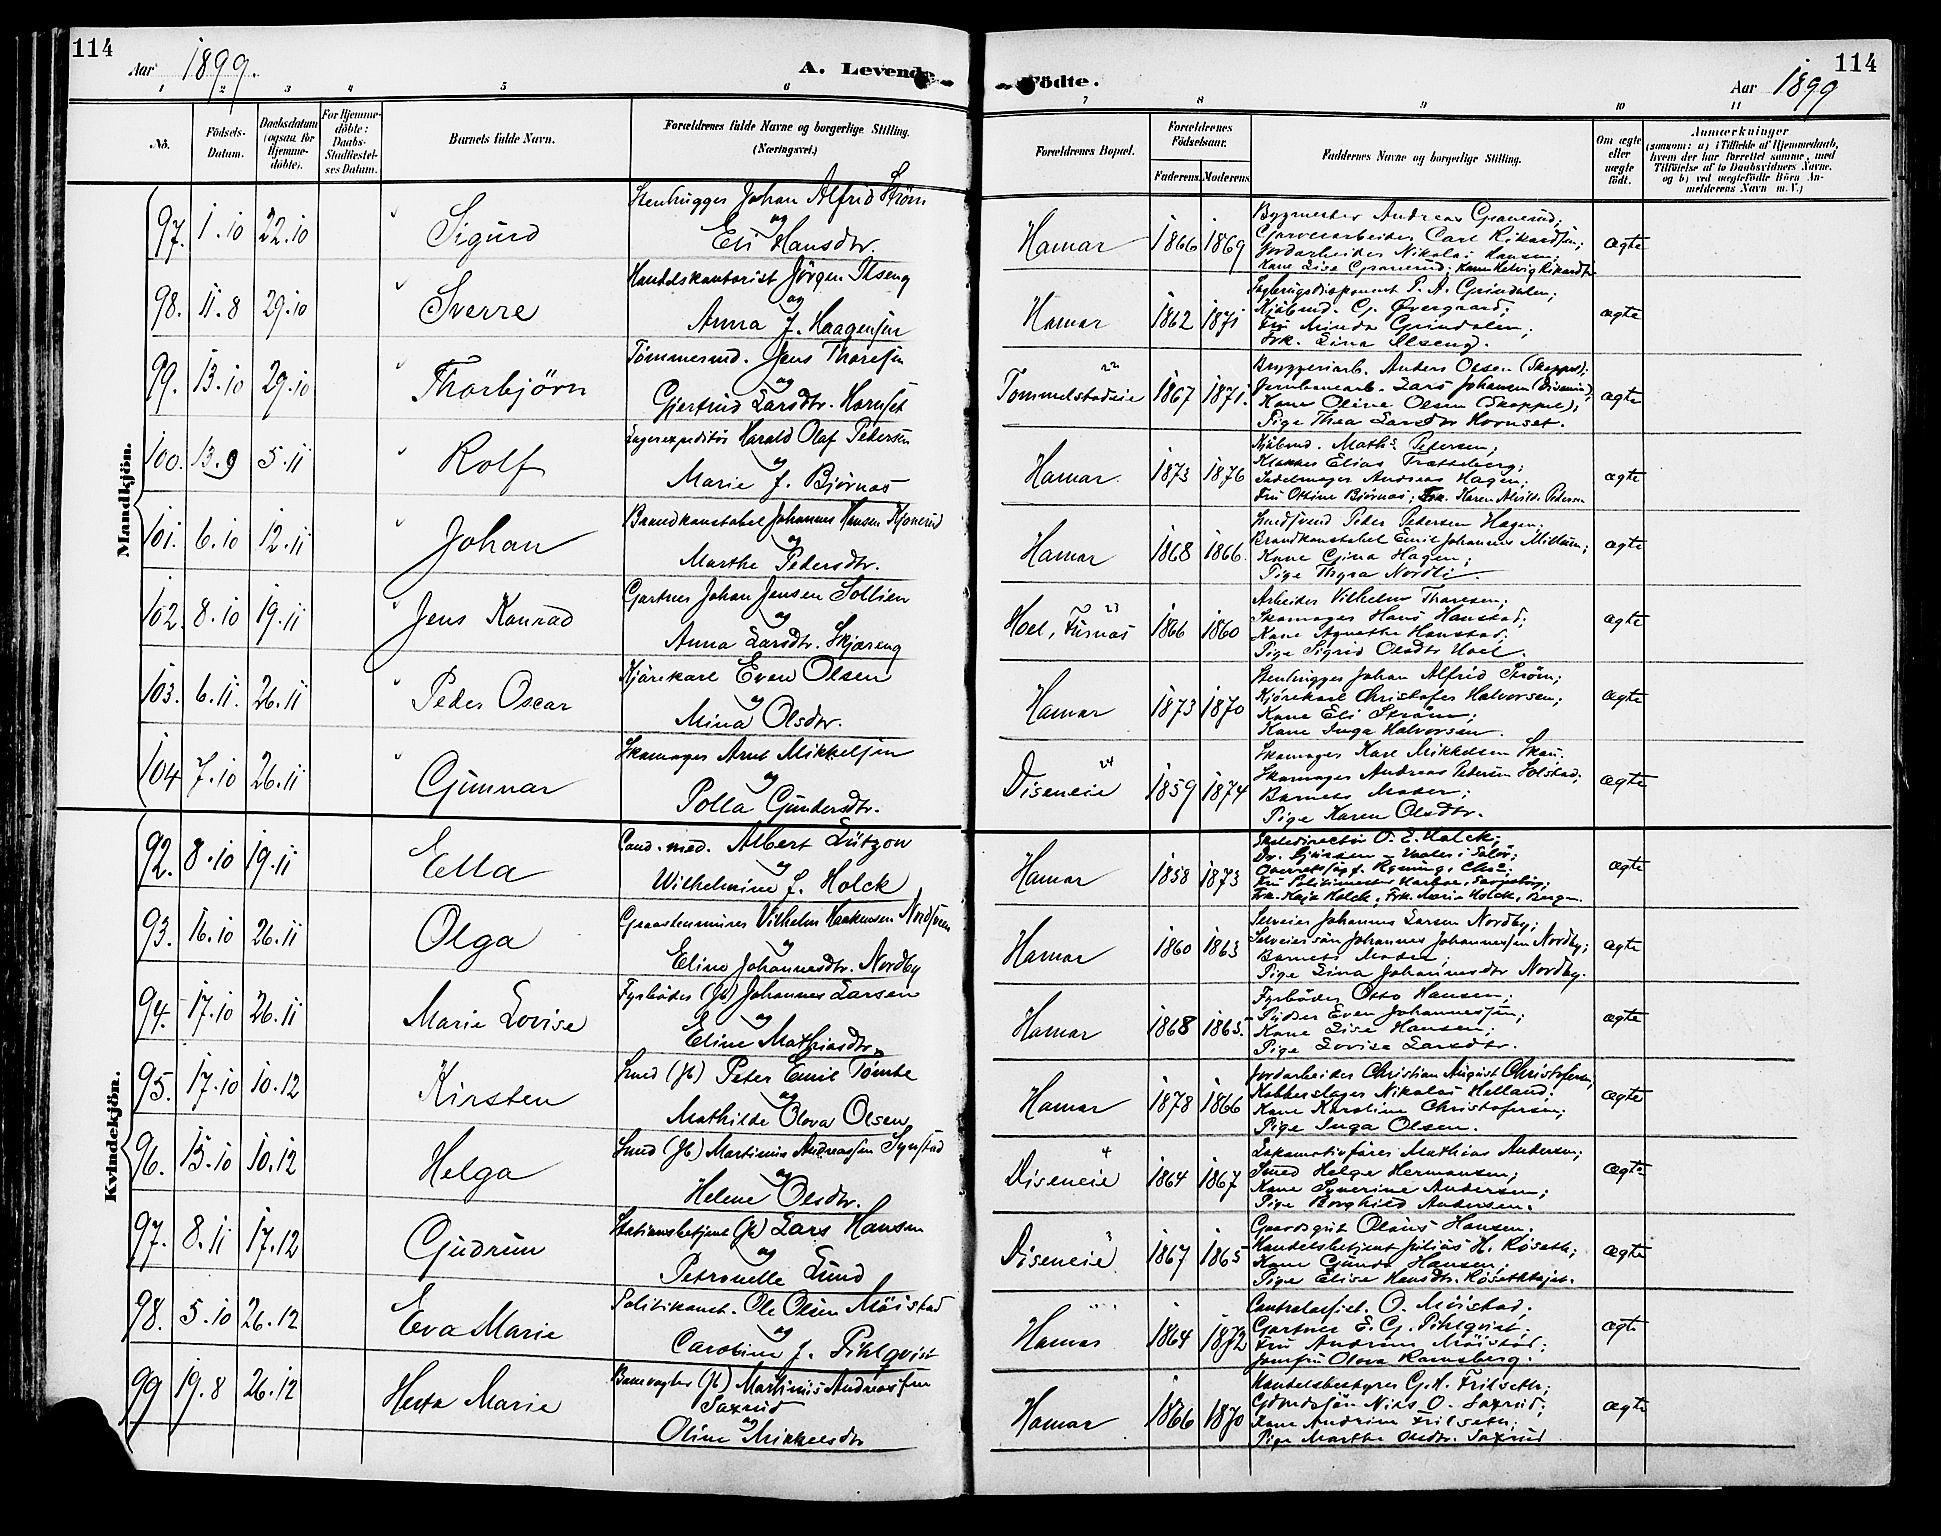 114
Aar 1899.
A. Levende
Födte.
Aar 1899
114
1 2 3 4 5 6 7 8 9 10 11
No.
Födsels-Datum.
Daabsdatum (ogsaa for Hjemmedöbte).
For Hjemmedöbte: Daabs-Stadfæstelses Datum.
Barnets fulde Navn.
Forældrenes fulde Navne og borgerlige Stilling. (Næringsvei.)
Forældrenes Bopæl.
Forældrenes Födselsaar.
Faderens. Moderens.
Faddernes Navne og borgerlige Stilling.
Om ægte eller uægte födt.
Anmærkninger
(saasom: a) i Tilfælde af Hjemmedaab, hvem der har forrettet samme, med Tilföielse af to Daabsvidners Navne, og b) ved uægtefödte Börn Anmelderens Navn m. V.)
Mandkjön.
97. 1.10 22.10 Sigurd
Stenhugger Johan Alfrid Strøm
og
Eli Hansdtr.
Hamar 1866 1869
Bygmester Andreas Granerud;
Garverarbeider Carl Rikardsen;
Jordarbeider Nikolai Hansen;
Kone Lise Granerud; Kone Helvig Rikardsen
ægte
98. 11.8 29.10 Sverre
Handelskontorist Jörgen Ilseng
og
Anna f. Haagensen
Hamar 1862 1871
P. A. Grindalen;
Kjöbmd. G. Øvergaard;
Fru Minda Grindalen;
Frk. Lina Ilseng.
ægte
99. 13.10 29.10 Thorbjörn
Tömmermd. Jens Thoresen
og
Gjertrud Larsdtr. Hornset
Tommelstadeie 22 1867 1871.
Bryggeriarb. Anders Olsen (Skappel);
Jernbanearb. Lars Johansen
Kone Oline Olsen (Skappel);
Pige Thea Larsdtr Hornset.
ægte
100. 13.9 5.11 Rolf
Lagerexpeditör Harald Olaf Pedersen
og
Marie f. Björnas
Hamar. 1873 1876
Kjöbmd. Maths. Petersen;
Elias Trætteberg;
Sadelmager Andreas Hagen;
Fru Othine Björnas; Frk. Karen Alvilde Pedersen
ægte
101. 6.10 12.11 Johan
Brandkonstabel Johannes Hansen Kjonerud
og
Marthe Pedersdtr.
Hamar 1868 1866.
Smedsvend Peder Petersen Hagen;
Brandkonstabel Emil Johannes
Kone Gina Hagen;
Pige Thyra Nordli.
ægte
102. 8.10 19.11 Jens Konrad
Gartner Johan Jensen Sollien
og
Anna Larsdtr. Skjæreng
Hoel, Furnæs 23 1866 1860
Arbeider Vilhelm Thoresen;
Skomager Hans Hanstad;
Kone Agnethe Hanstad;
Pige Sigrid Olsdtr Hoel.
ægte
103. 6.11. 26.11 Peder Oscar
Kjörekarl Even Olsen
og
Mina Olsdtr.
Hamar 1873 1870
Stenhugger Johan Alfrid Ström;
Kjörekarl Christofer Halvorsen;
Kone Eli Ström;
Kone Inga Halvorsen.
ægte
104 7.10 26.11 Gunnar
Skomager Arnt Mikkelsen
og
Polla Gundersdtr.
Diseneie 24 1859 1874
Skomager Karl Mikkelsen Skau;
Skomager Andreas Petersen Solstad;
Barnets Moder;
Pige Karen Olsdtr.
ægte
Kvindekjön.
92. 8.10 19.11 Ella
Cand. med. Albert Lützow
og
Wilhelmine f. Holck
Hamar 1858 1873
Skoledirectör O. E. Holck;
Frk. Kaja Holck, Frk. Maria Holck, Bergen
ægte
93. 16.10 26.11 Olga
Graastensmurer Vilhelm Haakensen
og
Eline Johannesdtr. Nordby
Hamar 1860 1863
Selveier Johannes Larsen Nordby;
Selveiersön Johannes Johannessen Nordby;
Barnets Moder;
Pige Lina Johannesdtr Nordby.
ægte
94. 17.10 26.11 Marie Lovise
Fyrböder (Jb) Johannes Larsen
og
Eline Mathiasdtr.
Hamar 1868 1865.
Fyrböder Otto Hansen;
Pudser Even Johannessen;
Kone Lise Hansen;
Pige Lovise Larsdtr.
ægte
95. 17.10 10.12 Kirsten
Smed (Jb) Peter Emil Tømte
og
Mathilde Olava Olsen
Hamar 1878 1866
Jordarbeider Christian August Christofersen,
Kobberslager Nikolai Helland;
Kone Karoline Christofersen;
Pige Inga Olsen.
ægte
96. 15.10 10.12 Helga
Smed (Jb) Martinus Andreassen Synstad
og
Helene Olsdtr.
Diseneie 4 1864 1867
Lokomotivförer Mathias Andersen;
Smed Helge Hermansen;
Kone Synerine Andersen;
Pige Borghild Andersen.
ægte
97. 8.11 17.12 Gudrun
Stationsbetjent (Jb) Lars Hansen
og
Petronelle Lund
Diseneie 3 1867 1865
Gaardsgut Olaus Hansen;
Handelsbetjent Julius H. Røseth;
Kone Gunda Hansen;
Pige Elise Hansdtr.
ægte
98. 5.10 26.12 Eva Marie
Politikonst. Ole Olsen Möistad
og
Caroline f. Pihlqvist
Hamar 1864 1872
O. Möistad;
Gartner E. G. Pihlqvist;
Fru Andrine Möistad;
Jomfru Olava Ramsberg.
ægte
99 19.8 26.12 Herta Marie
Banevogter (Jb) Martinius Andreassen
Saxrud
og
Oline Mikkelsdtr
Hamar 1866 1870
Handelsbestyrer G. A. Frilseth;
Gdmdssön Nils O. Saxrud;
Kone Andrine Frilseth;
Pige Marthe Olsdtr. Saxrud
ægte